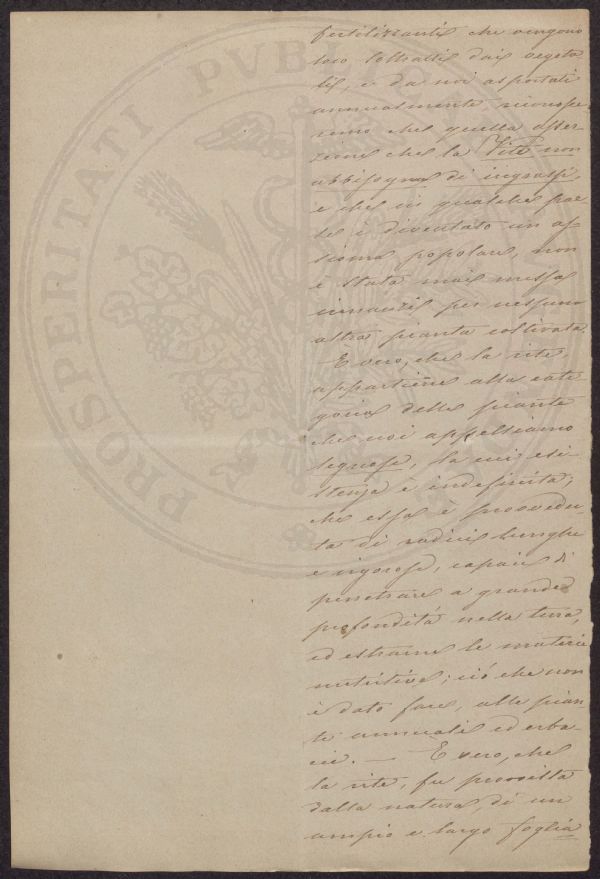 PROSPERITATI PVBLICAE
fertilizzanti che vengono
loro sottratti dai vegeta-
li, e da noi asportati
annualmente riconosce
remo che quella asser-
zione che la Vite non
abbisogna di ingrassi,
e che in qualche par
te è diventato un as-
sioma popolare, non
è stata mai messa
innanzi per nessuna
altra pianta coltivata
È vero, che la vite,
appartiene alla cate
goria delle piante
che noi appelliamo
legnose, la cui esi-
stenza è indefinita;
che essa è provvedu-
ta di radici lunghe
e vigorose, capaci di
penetrare a grande
profondità nella terra,
ed estrarne le materie
nutritive; ciò che non
è dato fare, alle pian
te annuali ed erba-
cee. — È vero, che
la vite, fu provvista
dalla natura, di un
ampio e largo foglia